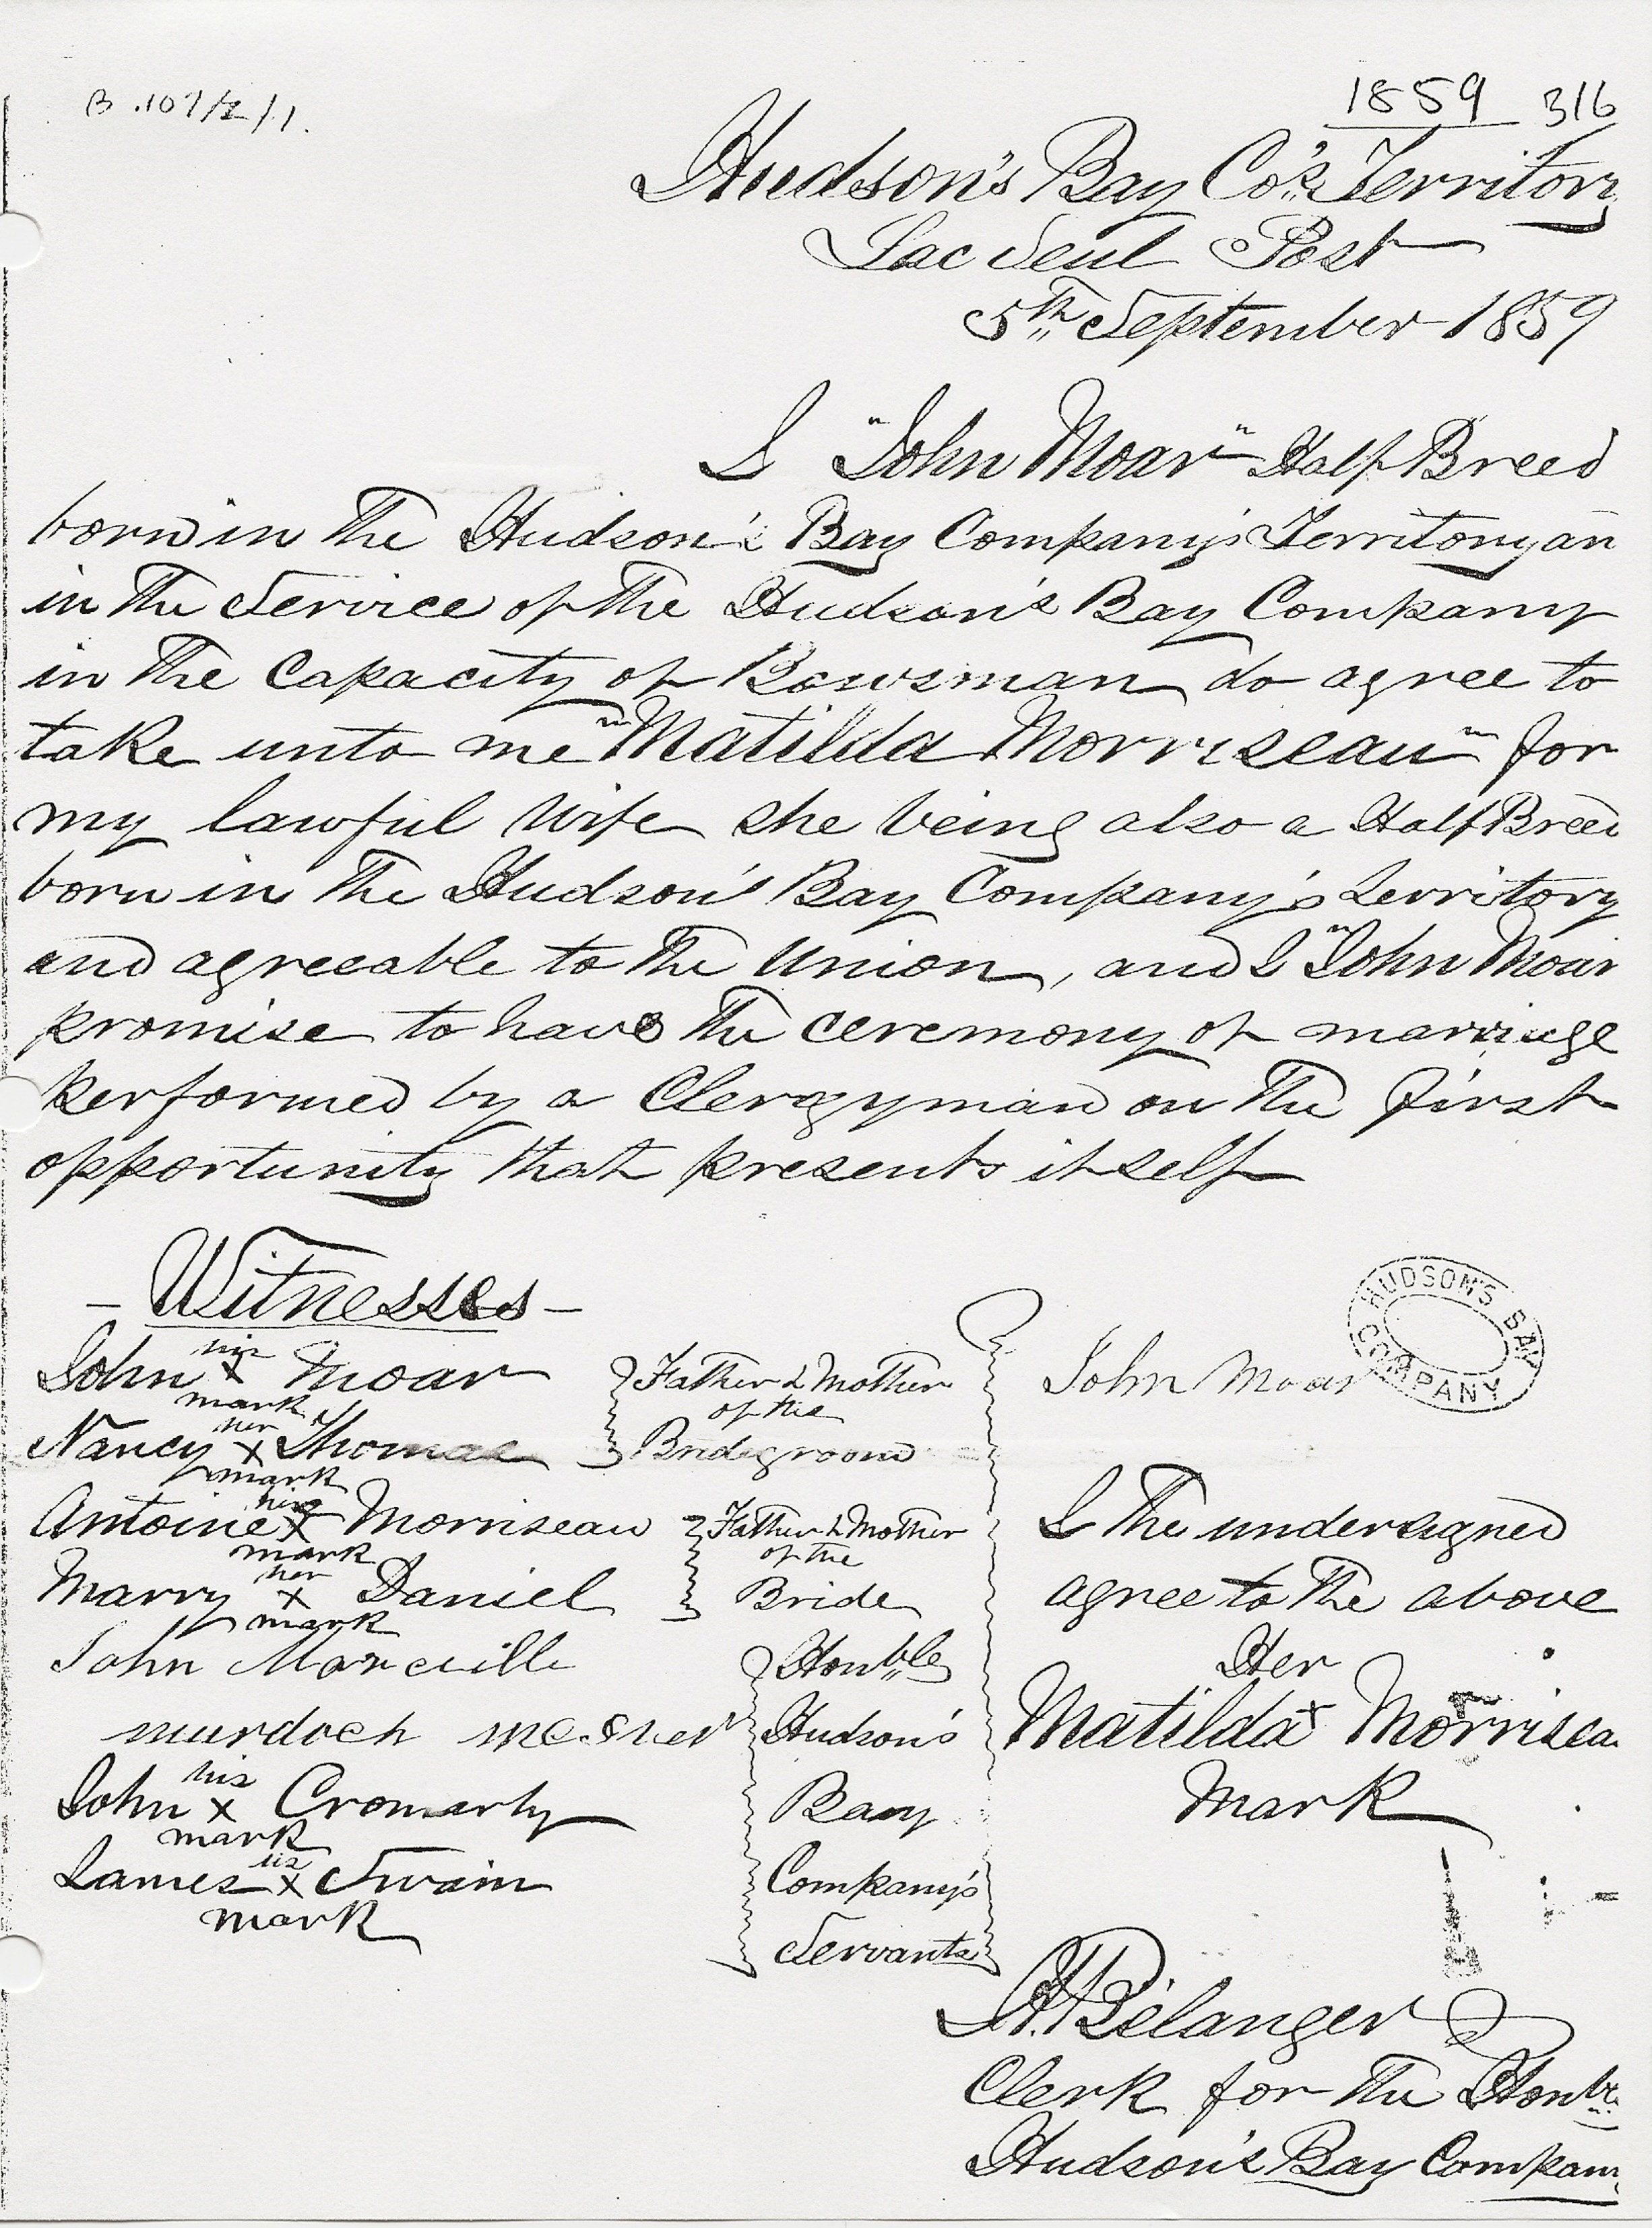 B.107/z/1.
1859 316
Hudson's Bay Co's Territory
Lac Seul Post
5th September 1859
I "John Moar" Half Breed
born in the Hudson's Bay Company's Territory an
in the Service of the Hudson's Bay Company
in the Capacity of Bowsman do agree to
take unto me "Matilda Morriseau" for
my lawful Wife she being also a Half Breed
born in the Hudson's Bay Company's territory
and agreeable to the Union, and I "John Moar
promise to have the ceremony of marriage
performed by a Clergyman on the first
opportunity that presents itself
- Witnesses -
his
John x Moar
mark
her
Nancy x Thomas
mark
Father & Mother
of the
Bridegroom
his
Antoine x Morriseau
mark
her
Marry x Daniel
mark
Father & Mother
of the
Bride
John
murdoch
his
John x Cromarty
mark
his
James x Swain
mark
Honble
Hudson's
Bay
Company's
Servants
John Moar
HUDSON'S BAY COMPANY
I the undersigned
agree to the above
Her
Matilda x Morrisea
Mark
Bélanger
Clerk for the Honble
Hudson's Bay Company